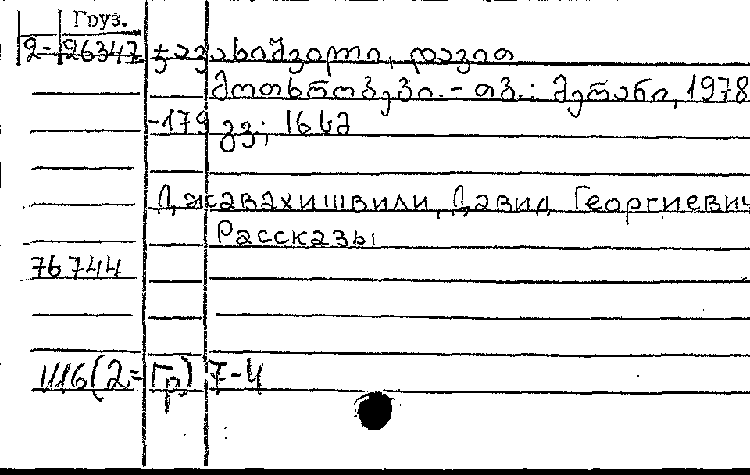 Груз.
2- 26347 ჯავახიშვილი, დავით
მოთხრობები. - თბ.: მერანი, 1978
-179 გვ.; 16 სმ
Джавахишвили, Давид Георгиевич
Рассказы
76744
Ш6(2=Гр)7-4